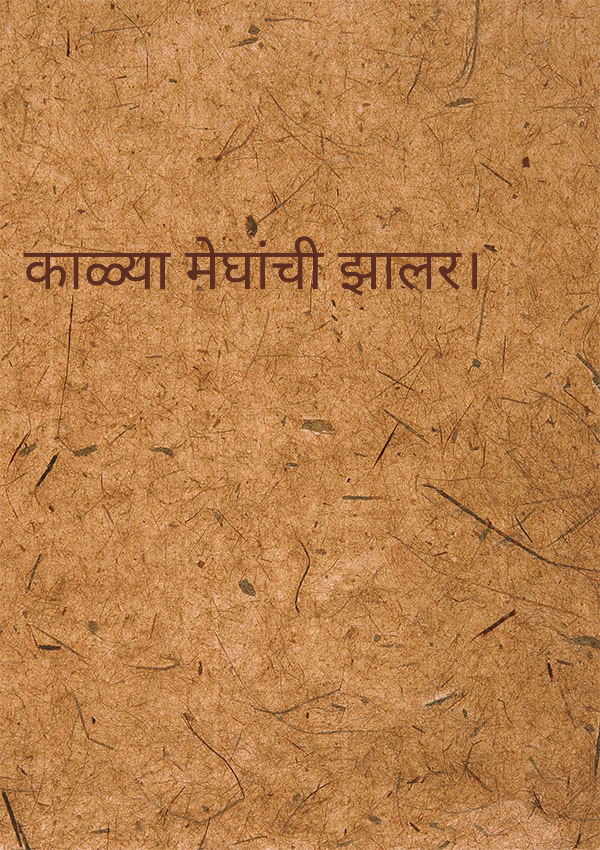 काळ्या मेघांची झालर।